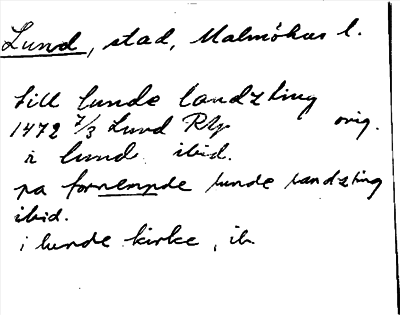 Lund, stad, Malmöhus l.
till lunde landzting
1472 7/3 Lund Rlp orig.
i lund ibid.
pa fornempde lunde landzting
ibid.
i lunde kirke, ib